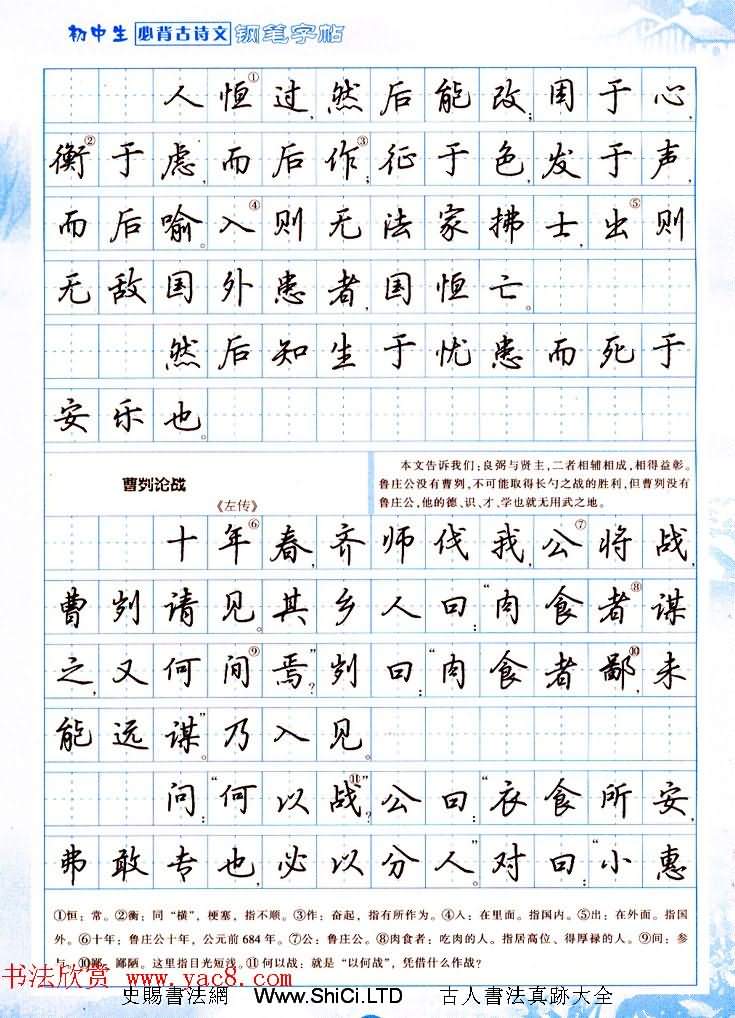 初中生必背古诗文钢笔字帖
人恒①过,然后能改;困于心,
衡②于虑,而后作③;征于色,发于声,
而后喻。入④则无法家拂士,出⑤则
无敌国外患者,国恒亡。
然后知生于忧患而死于
安乐也。
曹刿论战
《左传》
本文告诉我们:良弼与贤主,二者相辅相成,相得益彰。
鲁庄公没有曹刿,不可能取得长勺之战的胜利,但曹刿没有
鲁庄公,他的德、识、才、学也就无用武之地。
十年⑥春,齐师伐我,公⑦将战,
曹刿请见。其乡人曰:“肉食者⑧谋
之,又何间⑨焉?”刿曰:“肉食者鄙⑩,未
能远谋。”乃入见。
问:“何以战⑪?”公曰:“衣食所安,
弗敢专也,必以分人。”对曰:“小惠
①恒:常。②衡:同“横”,梗塞,指不顺。③作:奋起,指有所作为。④入:在里面。指国内。⑤出:在外面。指国
外。⑥十年:鲁庄公十年,公元前684年。⑦公:鲁庄公。⑧肉食者:吃肉的人。指居高位、得厚禄的人。⑨间:参
与。⑩鄙:鄙陋。这里指目光短浅。⑪何以战:就是“以何战”,凭借什么作战?
书法欣赏 www.yac8.com
史賜書法網 Www.ShiCi.LTD 古人書法真跡大全